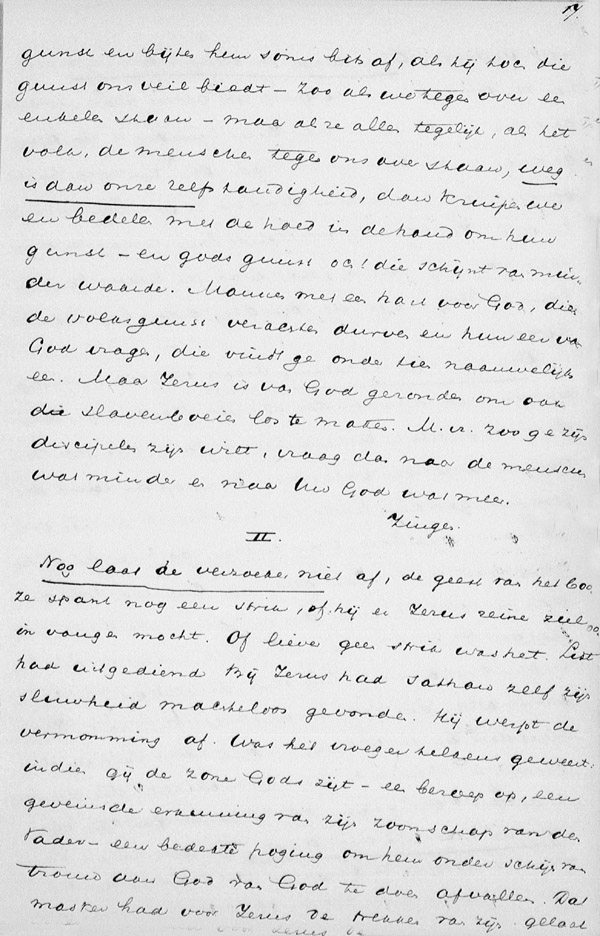 17.
gunst en bijtes hem soms bits af, als hij ons die
gunst ons veil biedt – zoo als we tegen over een
enkelen staan – maar als ze allen tegelijk, als het
volk, de menschen tegen ons over staan, weg
is dan onze zelfstandigheid, dan kruipen we
en bedelen met de hoed in de hand om hun
gunst – en gods gunst och die schijnt van min-
der waarde. Mannen met een hart voor God, die
de volksgunst verachten durven en hun eer van
God vragen, die vindt ge onder hen naauwelijks
een. Maar Jezus is van God gezonden om ook
die slavenboeien los te maken. M. v. zoo ge zijn
discipelen zijn wilt, vraag dan naar de menschen
wat minder en naar Uw God wat meer.
Zingen.
II.
Nog laat de verzoeker niet af, de geest van het boo
ze spant nog een strik, of hij er Jezus reine ziel
in vangen mocht. Of liever geen strik was het. List
had uitgediend bij Jezus had Sathan zelf zijn
sluwheid machteloos gevonden. Hij werpt de
vermomming af. Was het vroeger telkens geweest:
indien gij de zone Gods zijt – een beroep op, een
geveinsde erkenning van zijn zoonschap van den
Vader – een bedekte poging om hem onder schijn van
trouw aan God van God te doen afvallen. Dat
masker had voor Jezus de trekken van zijn gelaat